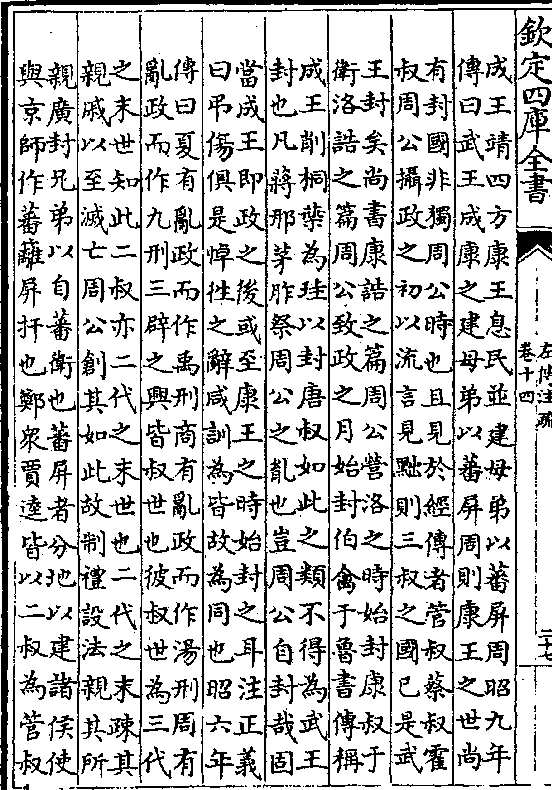 欽定四庫全書
左傳注疏
卷十四
二十七
成王靖四方康王息民並建母弟以蕃屏周昭九年
傳曰武王成康之建母弟以蕃屏周則康王之世尚
有封國非獨周公時也且見於經傳者管叔蔡叔霍
叔周公攝政之初以流言見黜則三叔之國已是武
王封矣尚書康誥之篇周公營洛之時始封康叔于
衛洛誥之篇周公致政之月始封伯禽于魯書傳稱
成王削桐葉為珪以封唐叔如此之類不得為武王
封也凡蔣邢茅胙祭周公之胤也豈周公自封哉固
當成王即政之後或至康王之時始封之耳注正義
曰弔傷俱是悼徃之辭咸訓為皆故為同也昭六年
傳曰夏有亂政而作禹刑商有亂政而作湯刑周有
亂政而作九刑三辟之興皆叔世也彼叔世為三代
之末世知此二叔亦二代之末世也二代之末疎其
親戚以至滅亡周公創其如此故制禮設法親其所
親廣封兄弟以自蕃衛也蕃屏者分地以建諸侯使
與京師作蕃籬屏扞也鄭衆賈逵皆以二叔為管叔